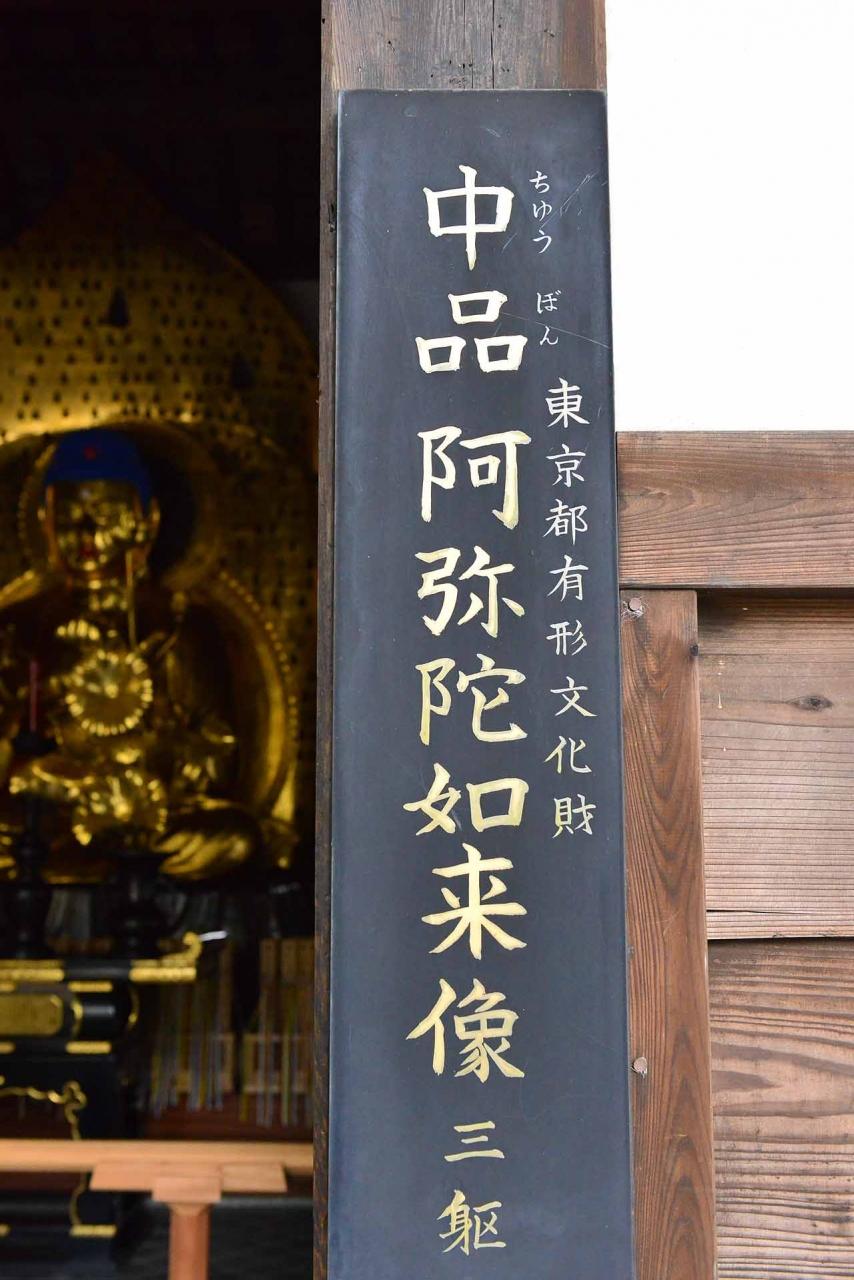 東京都有形文化財
ちゆう ぼん
中品 阿弥陀如来像 三躯